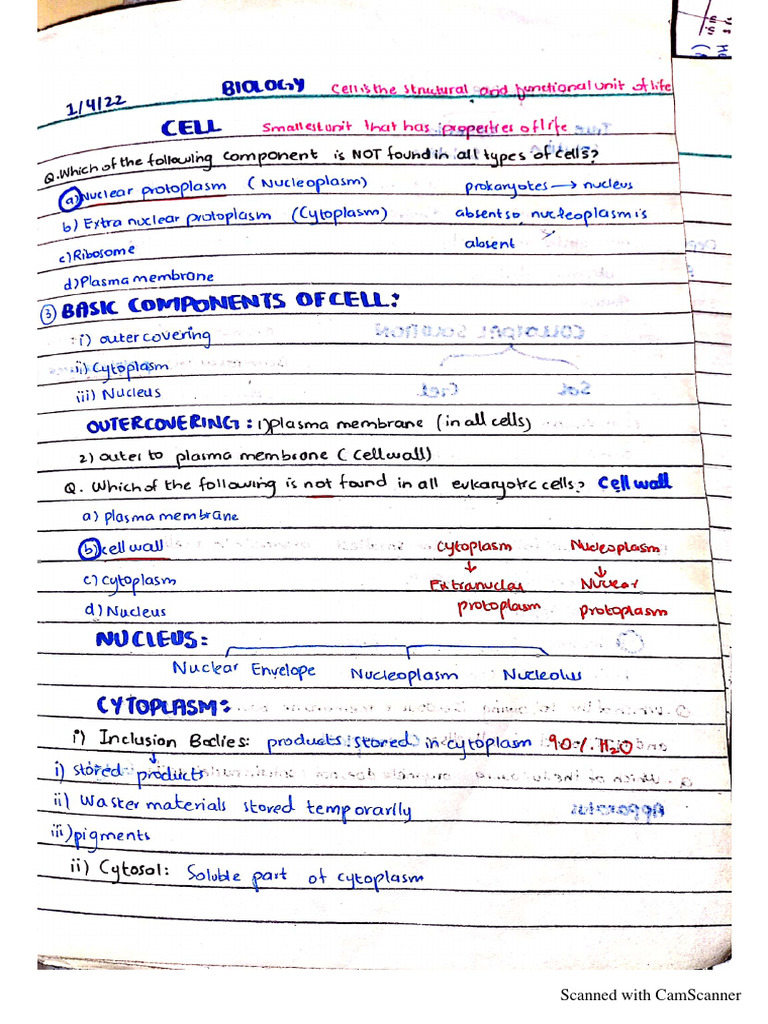 BIOLOGY Cell is the structural and functional unit of life
1/4/22
CELL Smallest unit that has properties of life
Q. Which of the following component is NOT found in all types of cells?
a) Nuclear protoplasm (Nucleoplasm) prokaryotes → nucleus
b) Extra nuclear protoplasm (Cytoplasm) absent so, nucleoplasm is
c) Ribosome absent
d) Plasma membrane
③ BASIC COMPONENTS OF CELL:
i) outer covering
ii) Cytoplasm
iii) Nucleus
OUTERCOVERING: 1) plasma membrane (in all cells)
2) outer to plasma membrane (Cell wall)
Q. Which of the following is not found in all eukaryotic cells? Cell wall
a) plasma membrane
b) cell wall cytoplasm Nucleoplasm
↓ ↓
c) cytoplasm Extranuclear Nuclear
d) Nucleus protoplasm protoplasm
NUCLEUS:
Nuclear Envelope Nucleoplasm Nucleolus
CYTOPLASM:
i) Inclusion Bodies: products stored in cytoplasm 90% H2O
↓
i) stored products
ii) Waster materials stored temporarlly
iii) pigments
ii) Cytosol: Soluble part of cytoplasm
Scanned with CamScanner